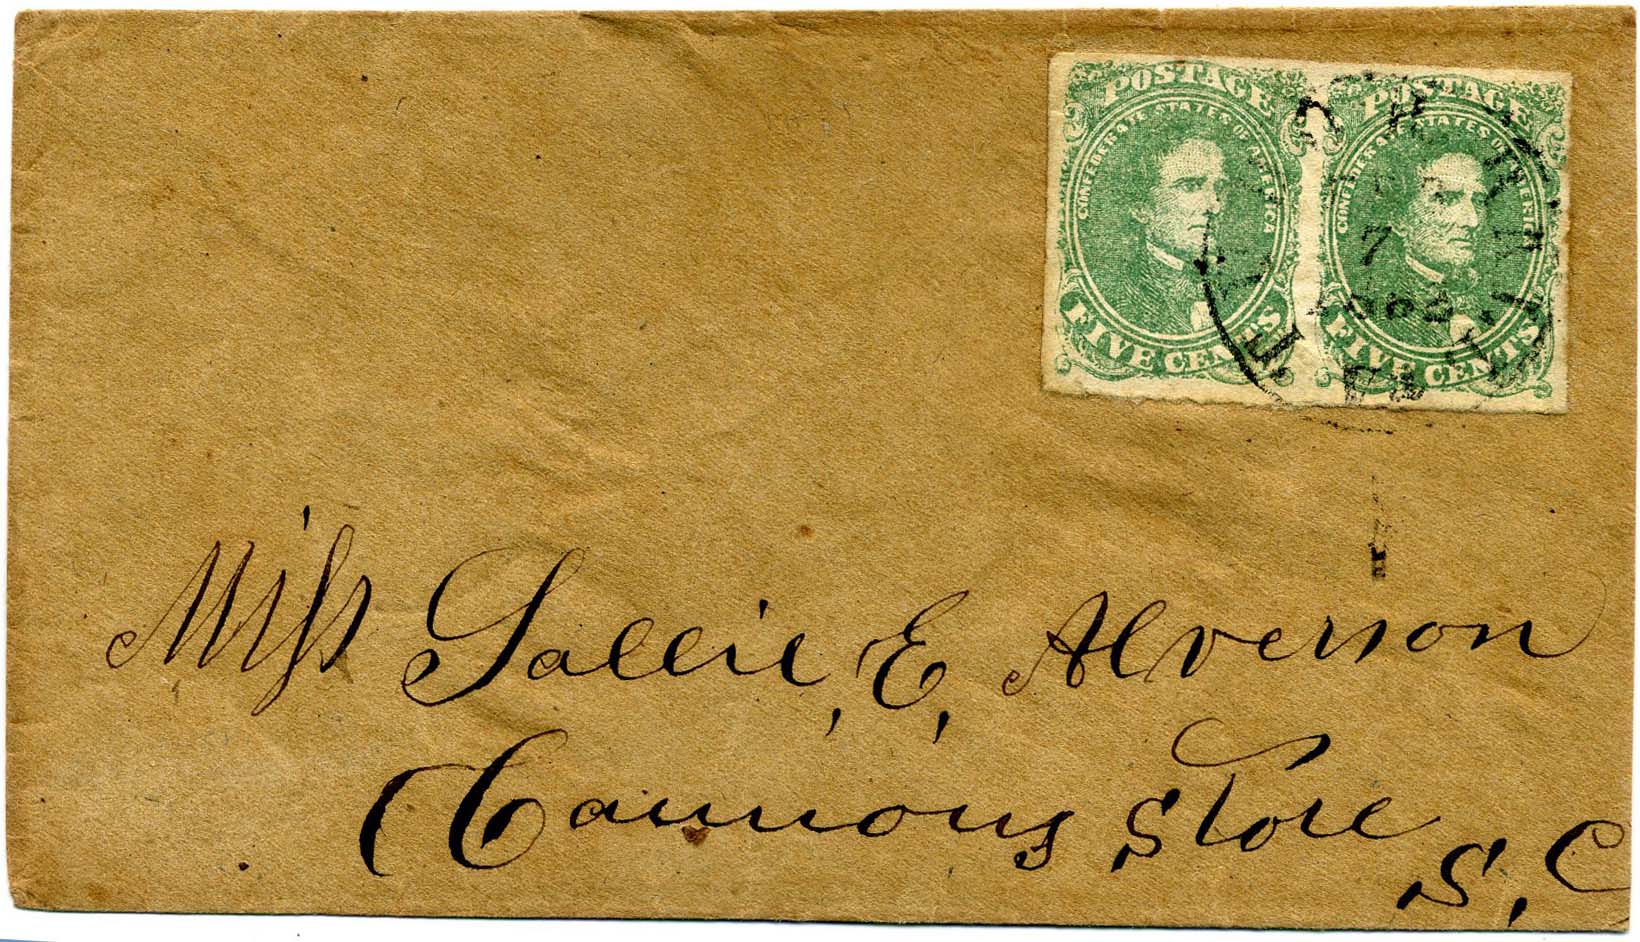 POSTAGE POSTAGE
CONFEDERATE STATES OF AMERICA CONFEDERATE STATES OF AMERICA
7
1862
FIVE CENTS FIVE CENTS
Miss Sallie, E, Alverson
Cannons Store
S, C